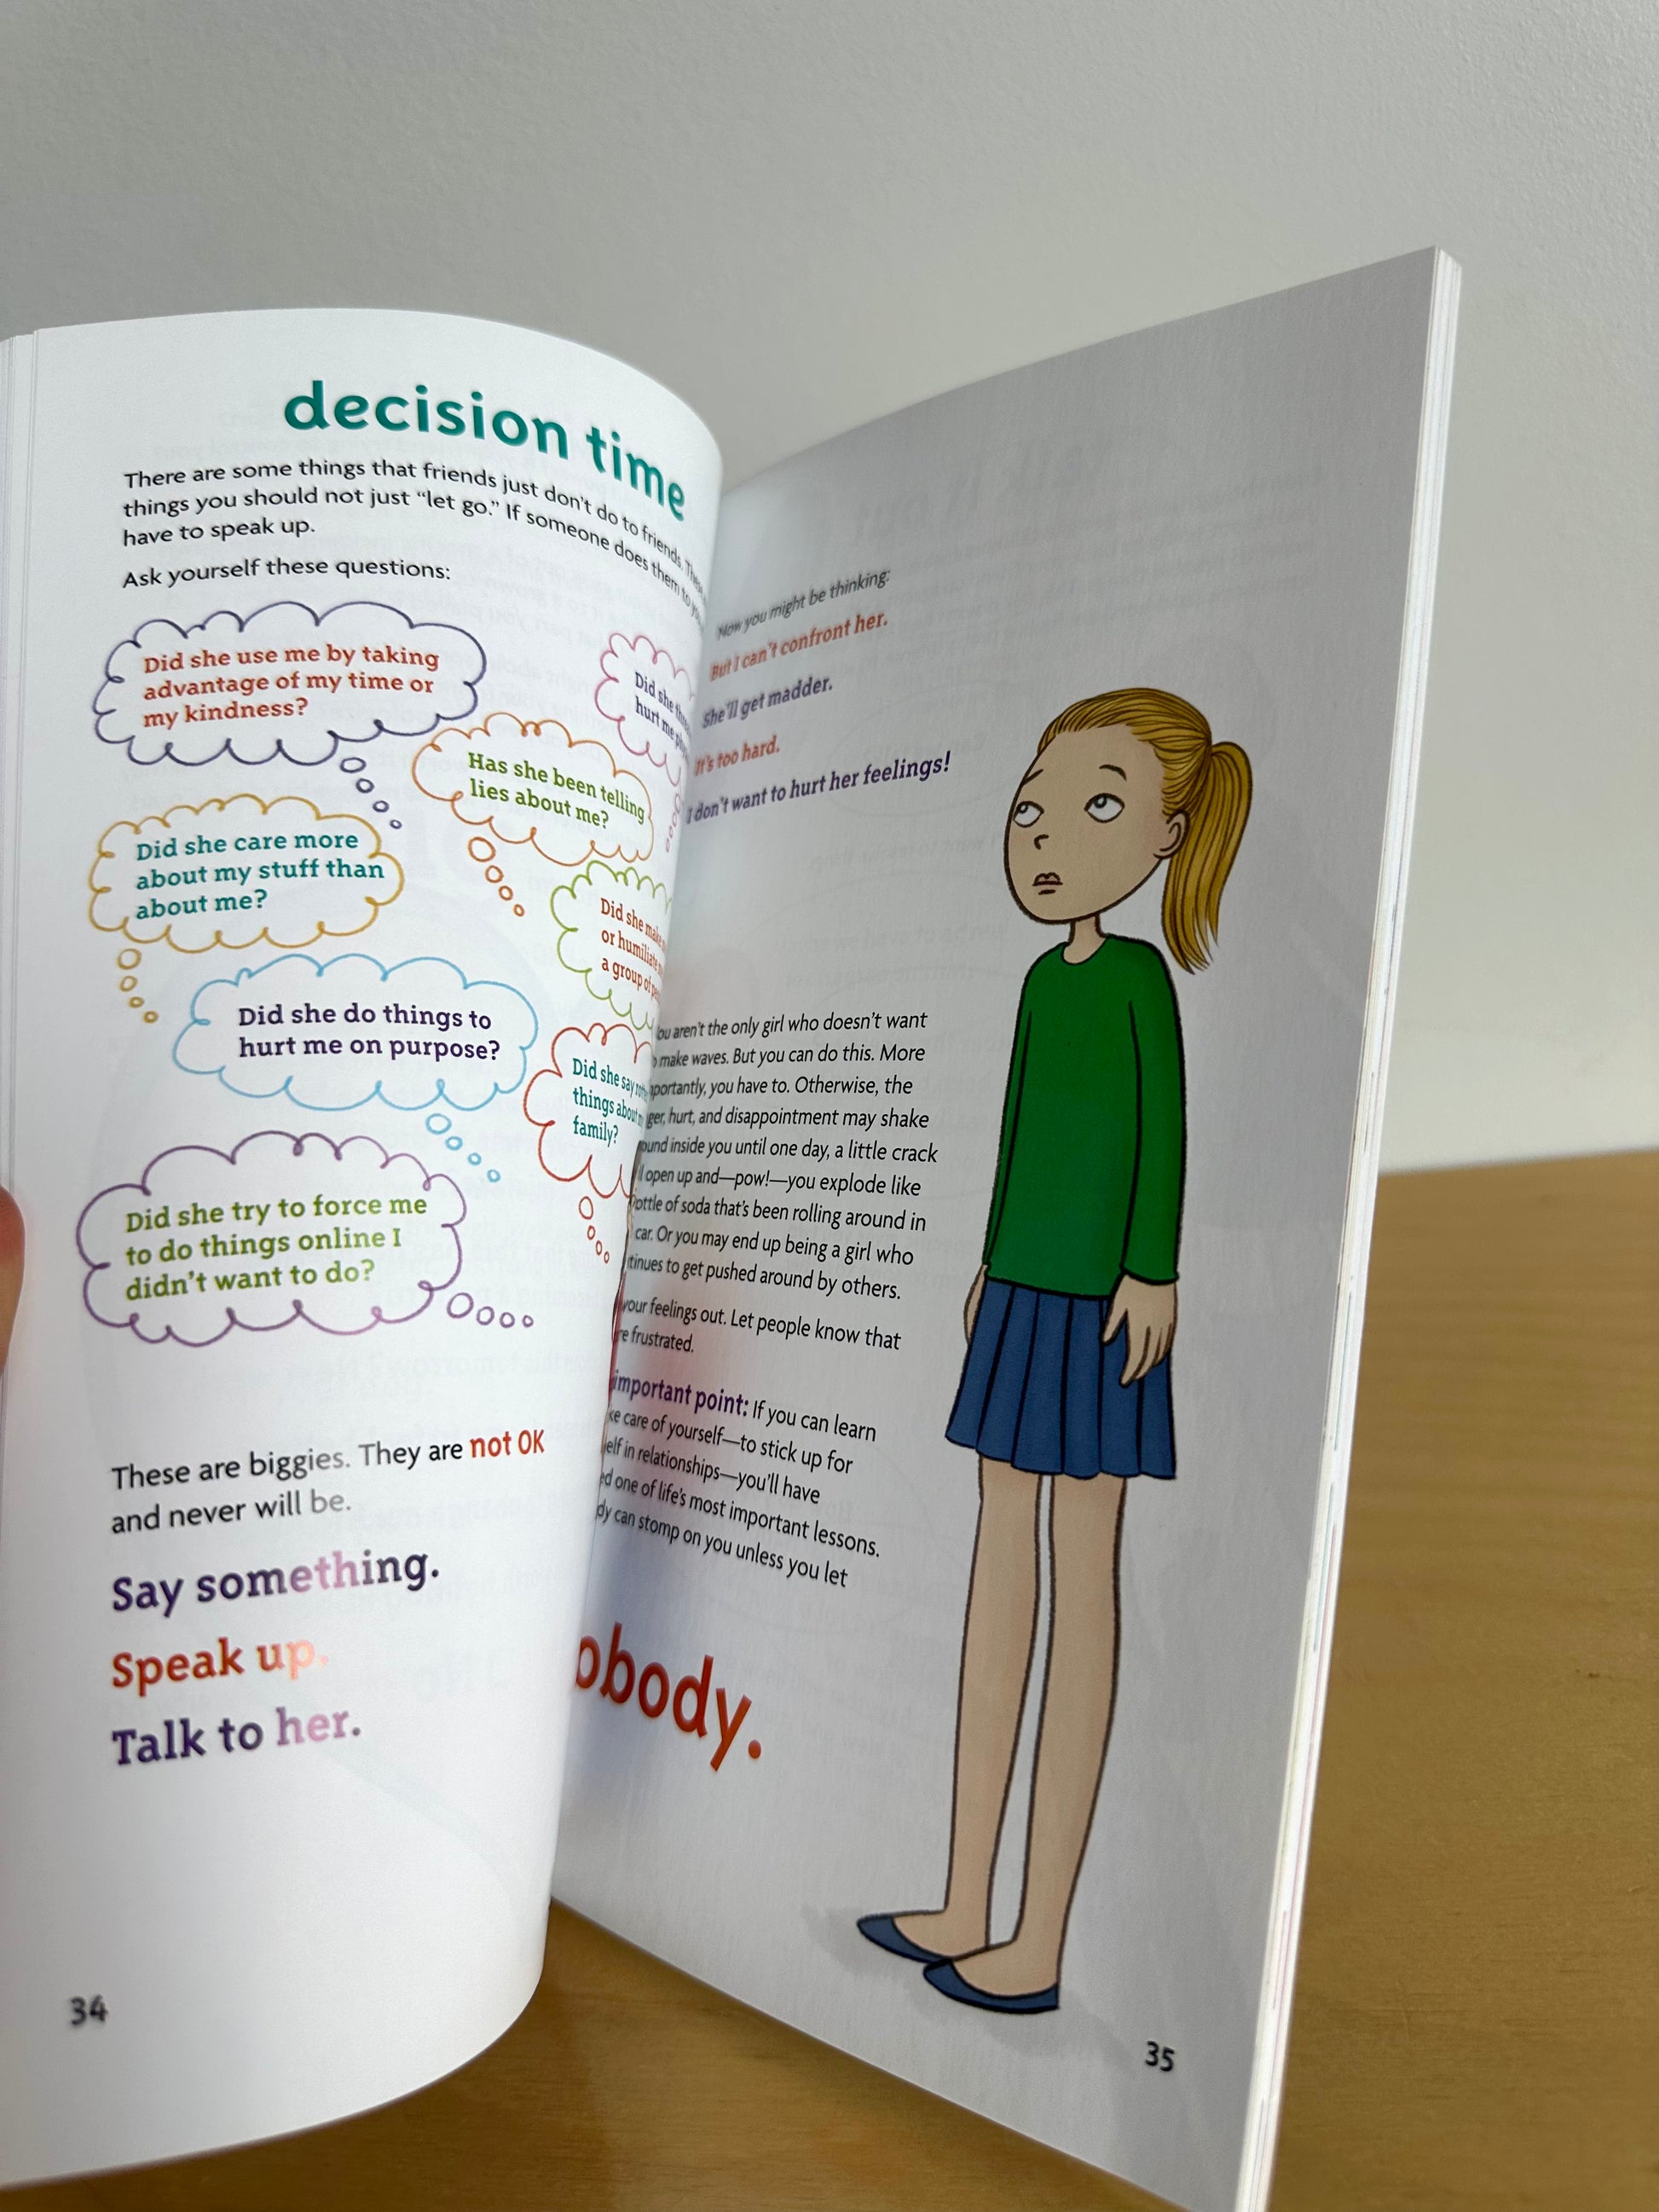 decision time
There are some things that friends just don't do to friends. These
things you should not just "let go." If someone does them to
have to speak up.
Ask yourself these questions:
Did she use me by taking
advantage of my time or
my kindness?
Did she
hurt me
Has she been telling
lies about me?
Did she care more
about my stuff than
about me?
Did she make
or humiliate
a group of
Did she do things to
hurt me on purpose?
Did she say
things about
family?
Did she try to force me
to do things online I
didn't want to do?
These are biggies. They are not OK
and never will be.
Say something.
Speak up.
Talk to her.
34
Now you might be thinking:
But I can't confront her.
She'll get madder.
It's too hard.
I don't want to hurt her feelings!
aren't the only girl who doesn't want
make waves. But you can do this. More
you have to. Otherwise, the
hurt, and disappointment may shake
inside you until one day, a little crack
open up and—pow!—you explode like
of soda that's been rolling around in
car. Or you may end up being a girl who
to get pushed around by others.
your feelings out. Let people know that
frustrated.
important point: If you can learn
care of yourself—to stick up for
in relationships—you'll have
one of life's most important lessons.
can stomp on you unless you let
obody.
35